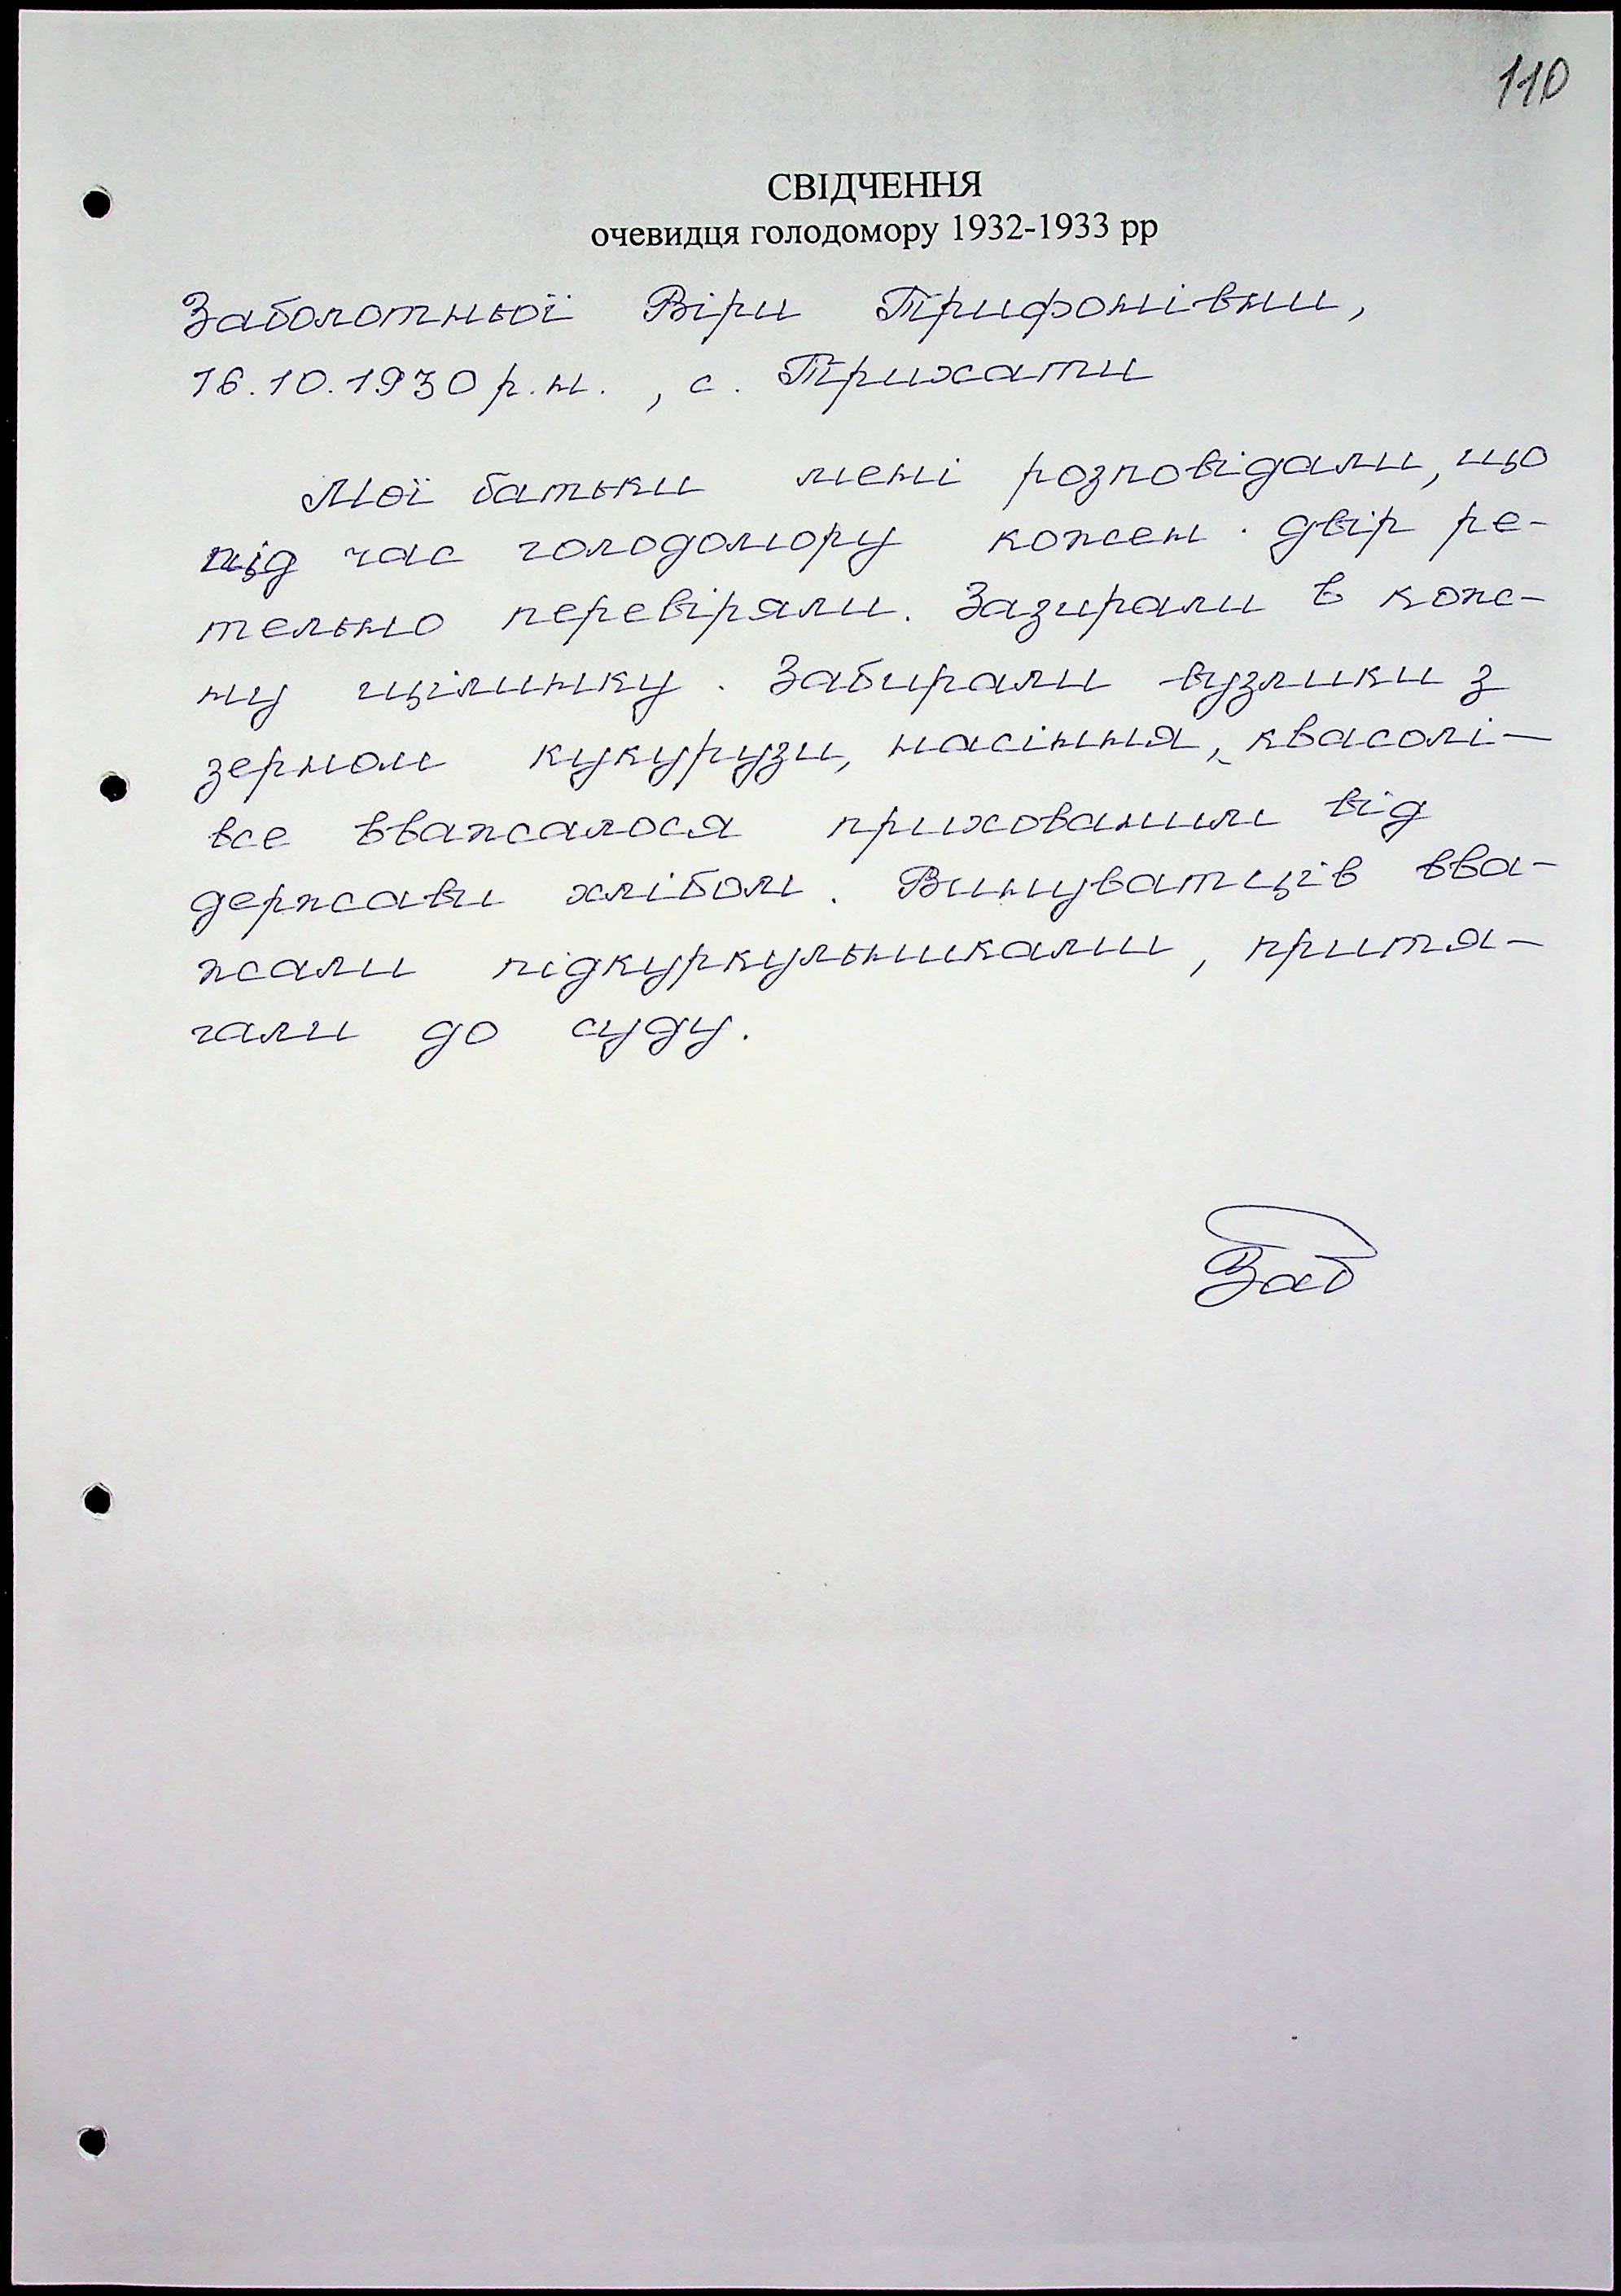 110
СВІДЧЕННЯ
очевидця голодомору 1932-1933 рр
Заболотньої Віри Трифонівни,
16.10.1930 р.н., с. Трихати
Мої батьки мені розповідали, що
під час голодомору кожен двір ре-
тельно перевіряли. Зазирали в кож-
ну щілинку. Забирали вузлики з
зерном кукурузи, насіння, квасолі—
все вважалося прихованим від
держави хлібом. Винуватців вва-
жали підкуркульниками, притя-
гали до суду.
Заб